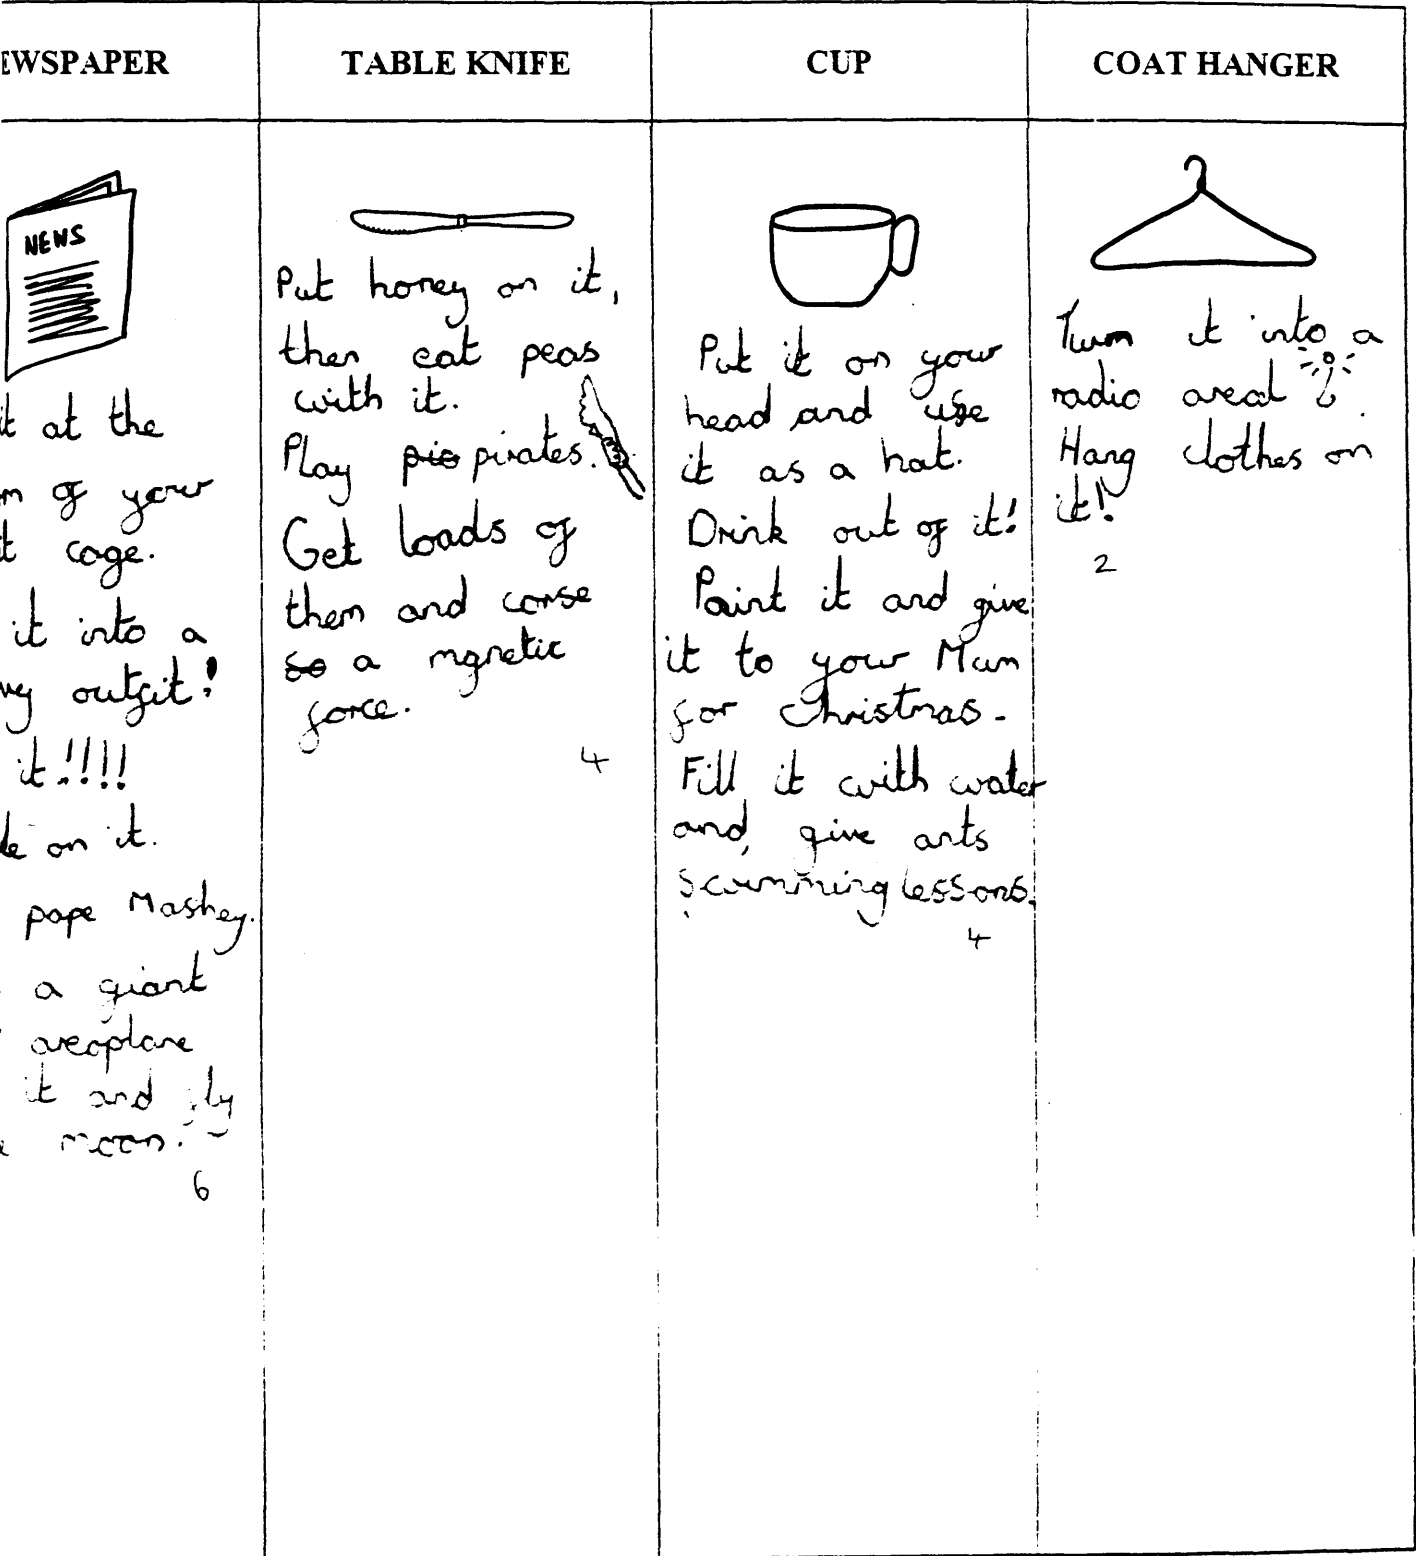 EWSPAPER
NEWS
it at the
m of your
t cage.
it into a
outfit!
it!!!!
on it.
pape Mashey.
a giant
areoplane
it and fly
moon.
6
TABLE KNIFE
Put honey on it,
then eat peas
with it.
Play pic pirates.
Get loads of
them and corse
so a mgnetic
force.
4
CUP
Put it on your
head and use
it as a hat.
Drink out of it!
Paint it and give
it to your Mum
for Christmas.
Fill it with water
and, give ants
swimming lessons.
4
COAT HANGER
Turn it into a
radio areal
Hang clothes on
it!
2